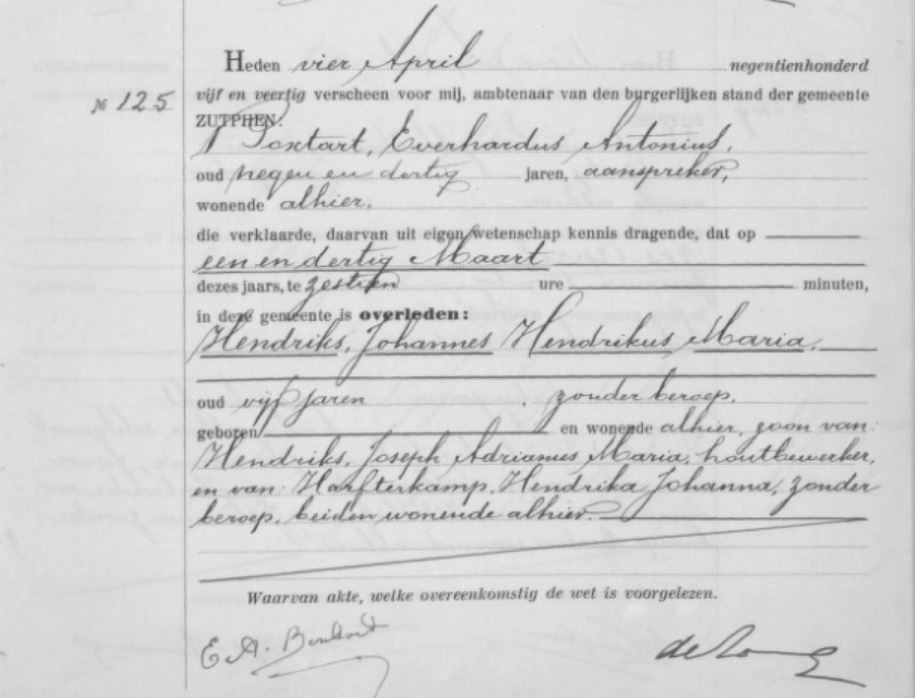 Heden vier April negentienhonderd
№ 125 vijf en veertig verscheen voor mij, ambtenaar van den burgerlijken stand der gemeente
ZUTPHEN:
Everhardus Antonius,
oud negen en dertig jaren, aanspreker,
wonende alhier,
die verklaarde, daarvan uit eigen wetenschap kennis dragende, dat op
een en dertig Maart
dezes jaars, te zestien ure minuten,
in deze gemeente is overleden:
Hendriks, Johannes Hendrikus Maria,
oud vijf jaren, zonder beroep,
geboren en wonende alhier, zoon van:
Hendriks, Joseph Adrianus Maria, houtbewerker,
en van: Harfterkamp, Hendrika Johanna, zonder
beroep, beiden wonende alhier.
Waarvan akte, welke overeenkomstig de wet is voorgelezen.
E. A.